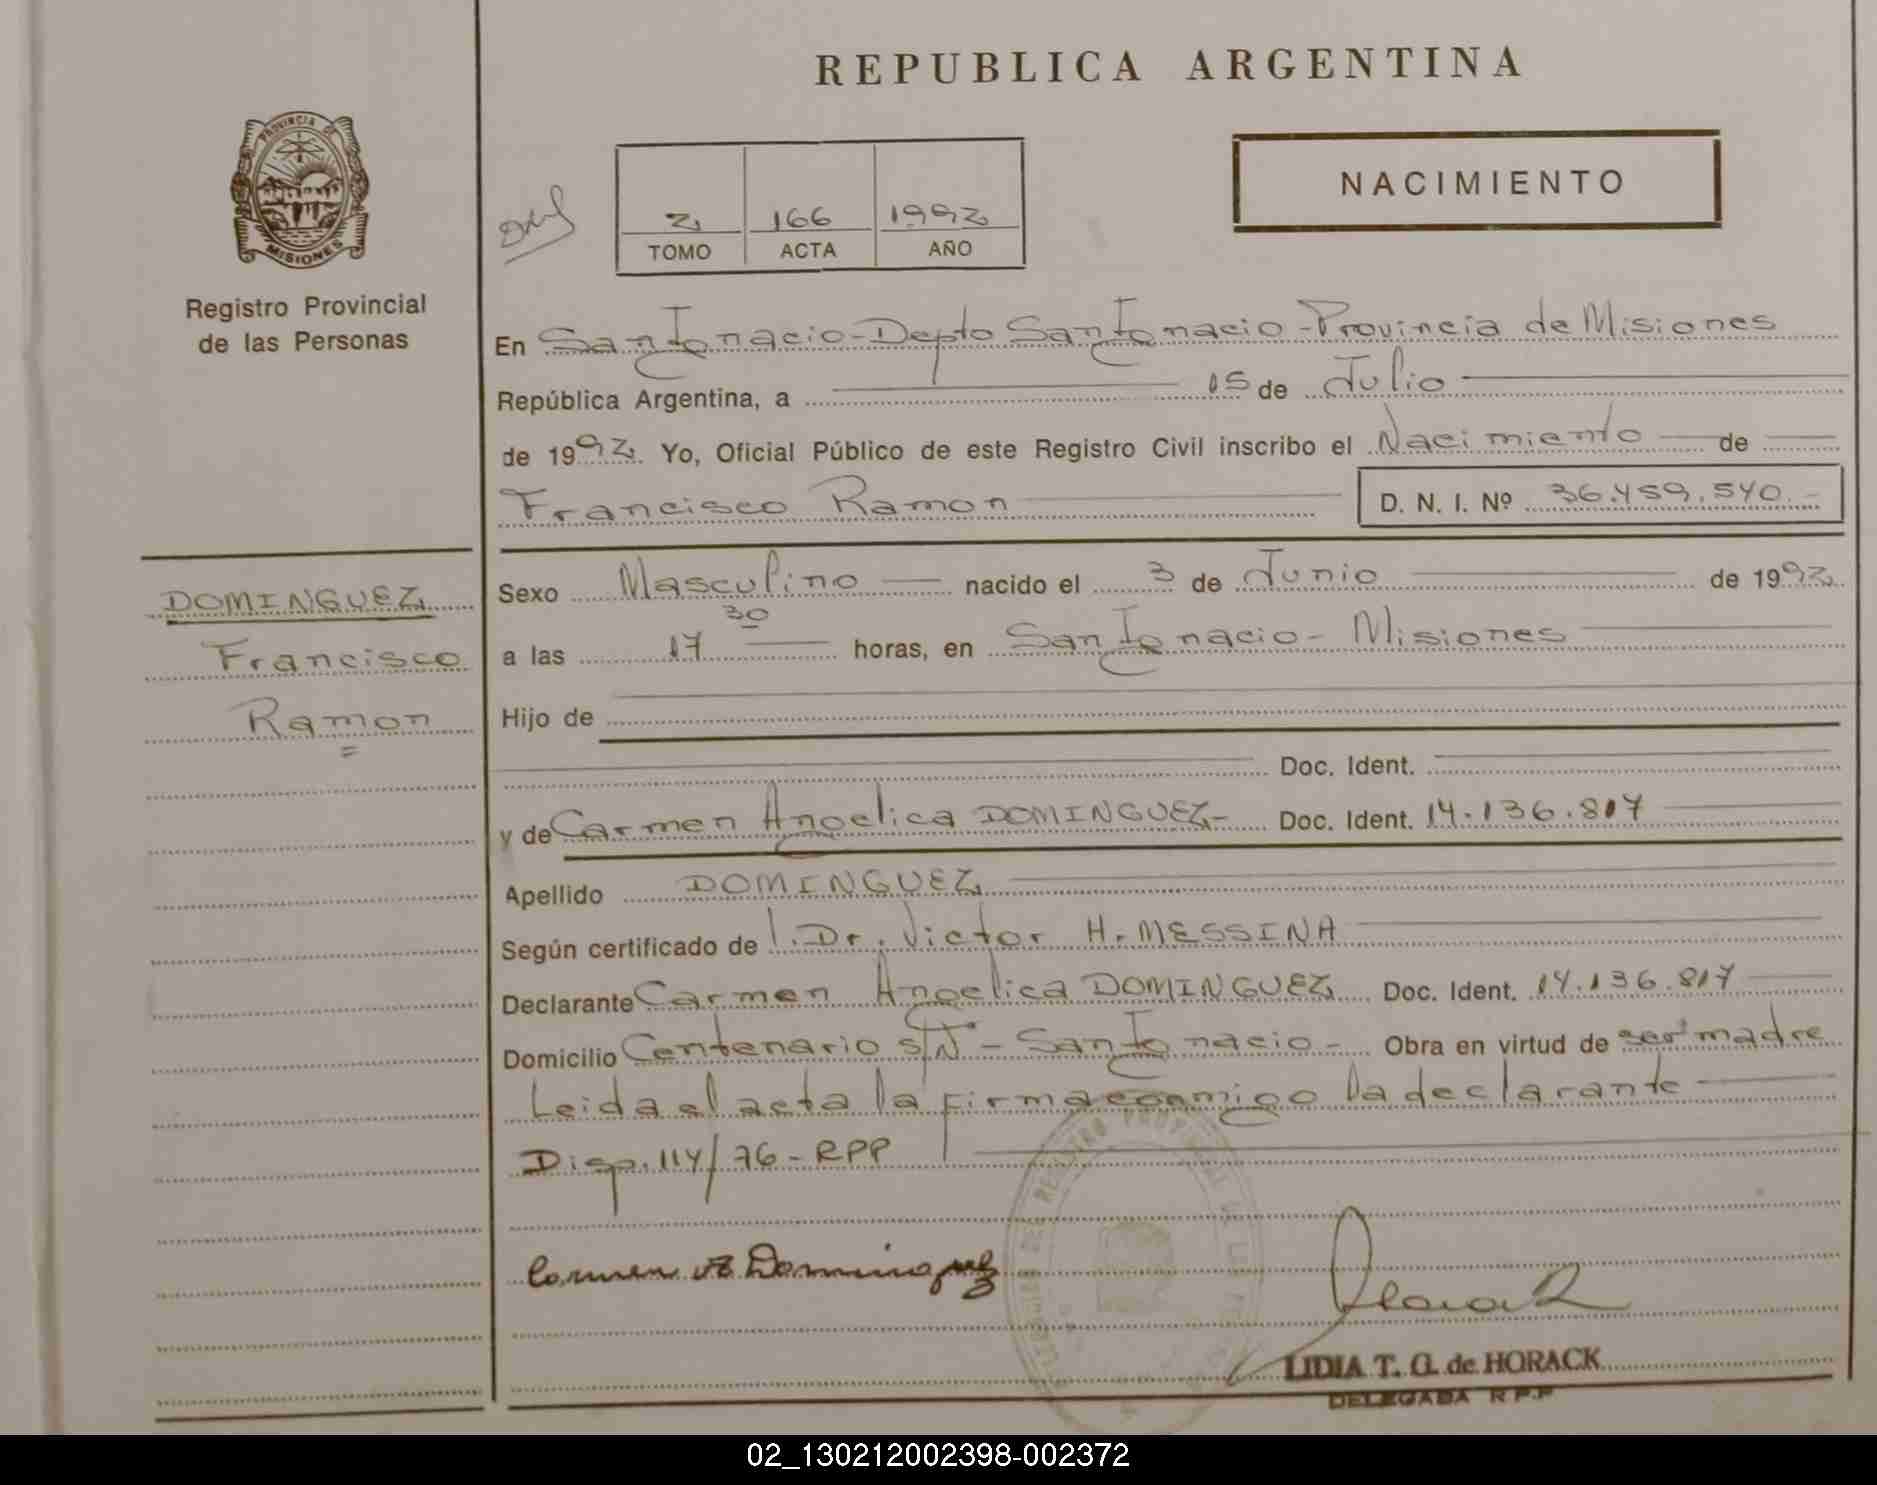 REPUBLICA ARGENTINA
PROVINCIA DE
MISIONES
Registro Provincial
de las Personas
2 166 1992
TOMO ACTA AÑO
NACIMIENTO
En San Ignacio - Depto San Ignacio - Provincia de Misiones
República Argentina, a 15 de Julio
de 1992. Yo, Oficial Público de este Registro Civil inscribo el Nacimiento de
Francisco Ramon D. N. I. Nº 36.459.540.-
DOMINGUEZ
Francisco
Ramon
Sexo Masculino nacido el 3 de Junio de 1992
a las 17 30 horas, en San Ignacio - Misiones
Hijo de
Doc. Ident.
y de Carmen Angelica DOMINGUEZ- Doc. Ident. 14.136.817
Apellido DOMINGUEZ
Según certificado de l. Dr. Victor H. MESSINA
Declarante Carmen Angelica DOMINGUEZ Doc. Ident. 14.136.817
Domicilio Centenario s/Nº - San Ignacio - Obra en virtud de ser madre
Leida el acta la firma conmigo la declarante
Disp. 114/76 - RPP
Carmen A Dominguez
LIDIA T. G. de HORACK
DELEGADA R.P.P
02_130212002398-002372